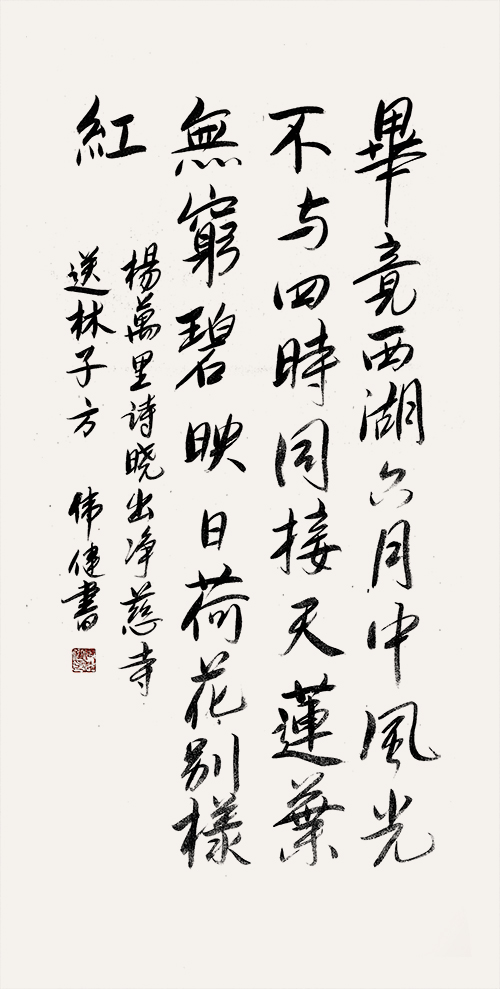 畢竟西湖六月中風光
不与四時同接天蓮葉
無窮碧映日荷花别樣
紅
楊萬里诗晓出净慈寺
送林子方 伟健書